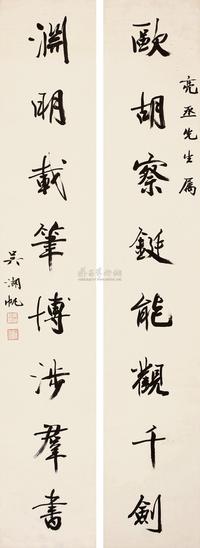 亮丞先生属
歐胡察鋌能觀千劍
淵明載筆博涉羣書
吴湖帆